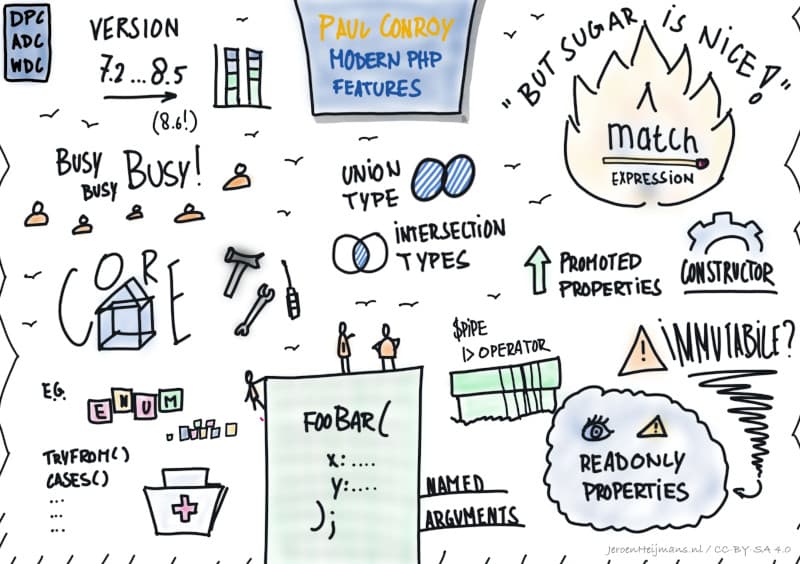 DPC
ADC
WDC
VERSION
7.2...8.5
(8.6!)
PAUL CONROY
MODERN PHP
FEATURES
"BUT SUGAR IS NICE!"
match
EXPRESSION
BUSY
BUSY
BUSY!
UNION
TYPE
INTERSECTION
TYPES
PROMOTED
PROPERTIES
CONSTRUCTOR
CORE
$PIPE
|> OPERATOR
IMMUTABILE?
E.G.
ENUM
TRYFROM()
CASES()
...
...
...
FOOBAR(
x:....
y:....
);
NAMED
ARGUMENTS
READONLY
PROPERTIES
JeroenHeijmans.nl / CC-BY-SA 4.0